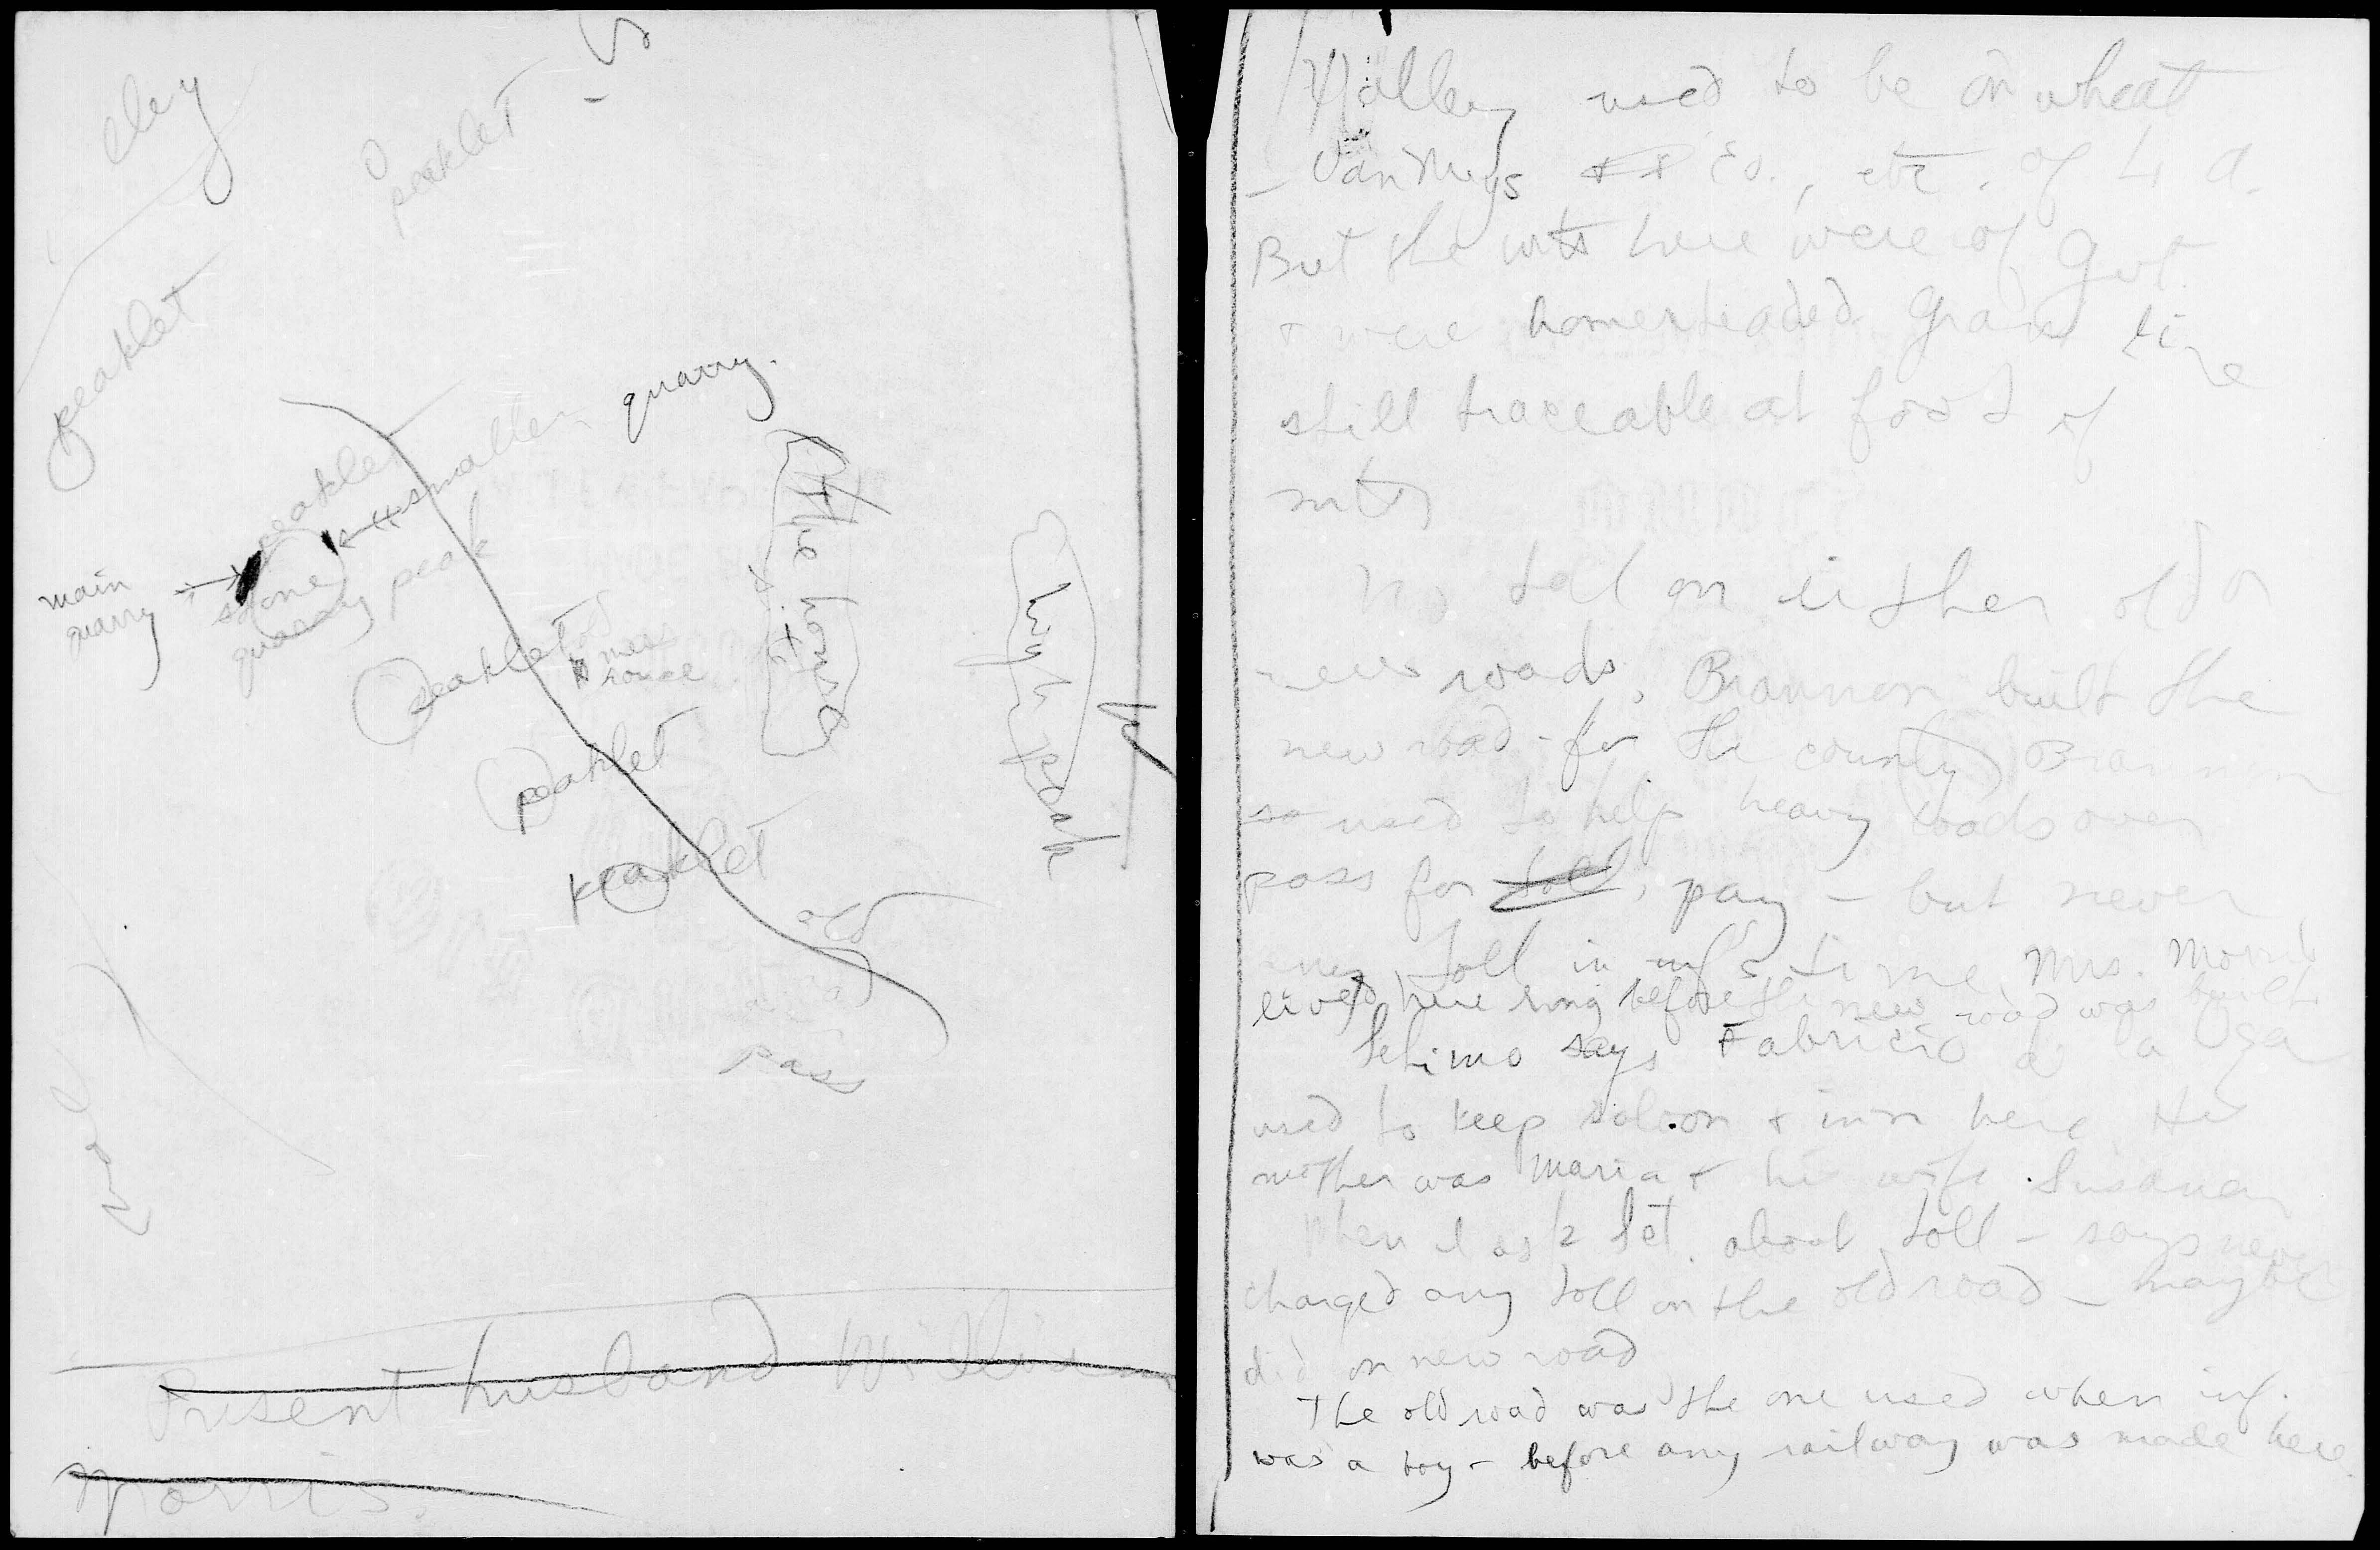 eley
peaklet
peaklet
quarry.
smaller
peaklet
main
quarry
stone
quarry peak
the house
site
high peak
peaklet
old
mess
house
peaklet
peaklet
old
pass
Present husband William
Morris.
Valley used to be in wheat
— Van Nuys & Co., etc. of L A.
But the mts here were of Gvt
& were homesteaded. Grant line
still traceable at foot of
mts
No toll on either old or
new roads. Brannon built the
new road - for the county Brannon
so used to help heavy loads over
pass for toll, pay — but never
any toll in inf's time. Mrs. Morris
lived here long before the new road was built
Setimo says Fabricio de la Osa
used to keep saloon & inn here. His
mother was Maria & his wife Susana
When I ask Set. about toll — says never
charged any toll on the old road — maybe
did on new road
The old road was the one used when inf.
was a boy — before any railway was made here.